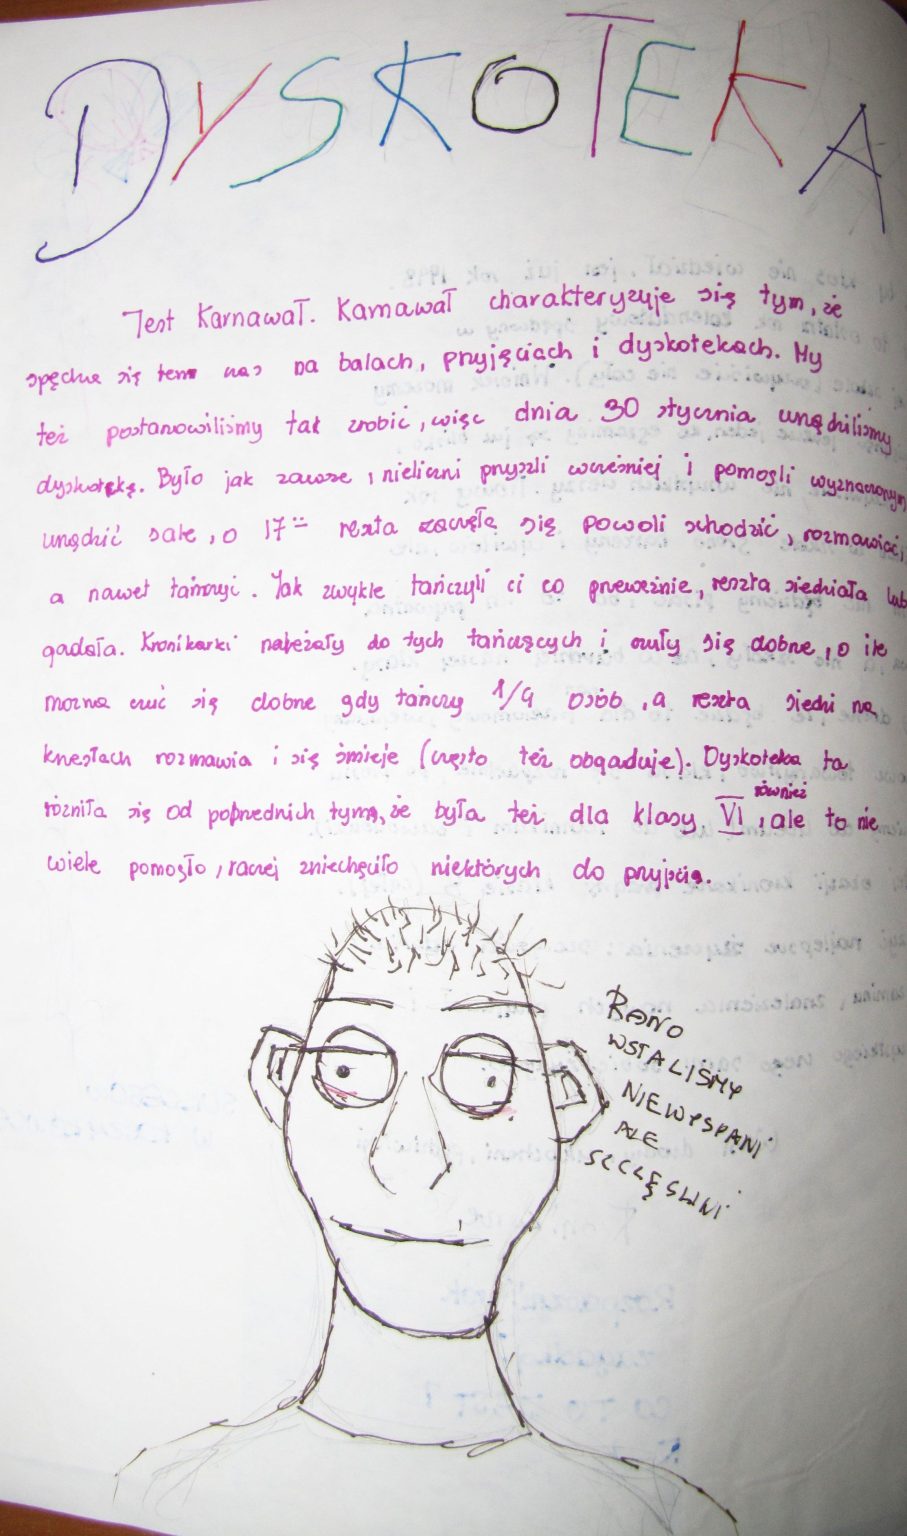 DYSKOTEKA
Jest Karnawał. Karnawał charakteryzuje się tym, że
spędza się ten nas na balach, przyjęciach i dyskotekach. My
też postanowiliśmy tak zrobić, więc dnia 30 stycznia urządziliśmy
dyskotekę. Było jak zawsze, nieliczni przyszli wcześniej i pomogli wyznaczonym
urządzić sale, o 17== reszta zaczęła się powoli schodzić, rozmawiać,
a nawet tańczyć. Jak zwykle tańczyli ci co przeważnie, reszta siedziała lub
gadała. Kronikarki należały do tych tańczących i czuły się dobrze, o ile
można czuć się dobrze gdy tańczy 1/4 osób, a reszta siedzi na
krzesłach rozmawia i się śmieje (często też obgaduje). Dyskoteka ta
różniła się od poprzednich tym, że była też dla klasy VI również, ale to nie
wiele pomogło, raczej zniechęciło niektórych do przyjścia.
RANO
WSTALIŚMY
NIEWYSPANI
ALE
SZCZĘSLIWI